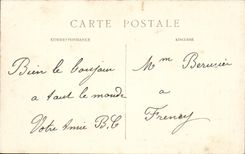 CARTE POSTALE
CORRESPONDANCE
ADRESSE
Bien le bonjour
a tout le monde
Votre Amie B. C
Mm Beruier
a
Freney